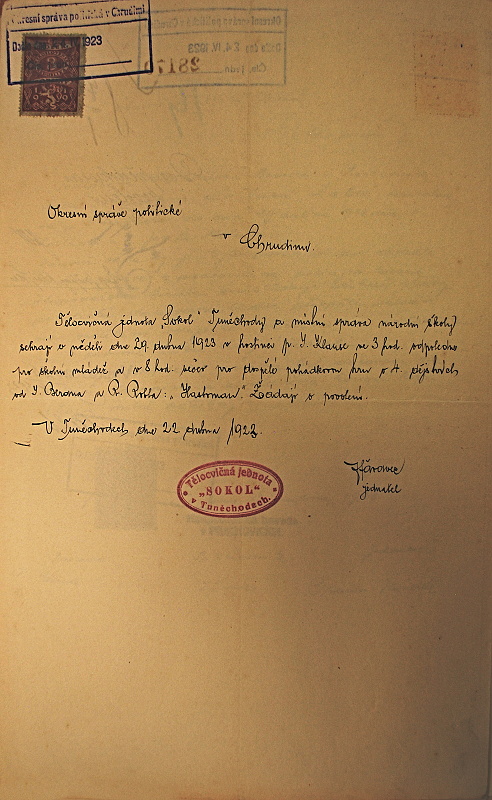 Okresní správa politická v Chrudimi
1923
Okresní správě politické
v Chrudimi.
Tělocvičná jednota „Sokol“ Tuněchody a místní správa národní školy
sehrají v neděli dne 29. dubna 1923 v hostinci p. J. Klause ve 3 hod. odpoledne
pro školní mládež a v 8 hod. večer pro dospělé pohádkovou hru o 4. dějstvích
od J. Berana a R. : „Hastrman“. Žádají o povolení.
V Tuněchodech dne 22 dubna 1923.
Tělocvičná jednota
"SOKOL"
v Tuněchodech.
jednatel